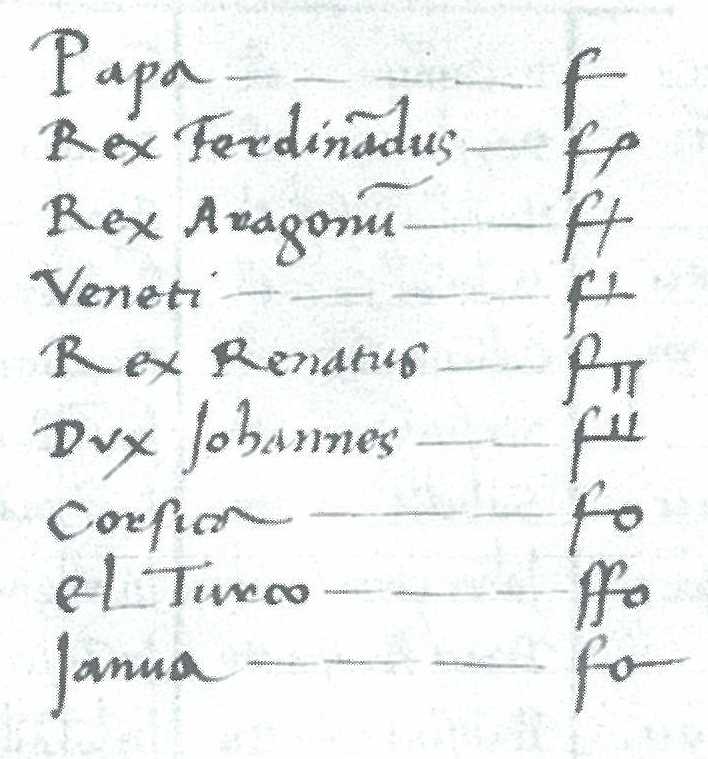 Papa f
Rex Ferdinãdus
Rex Aragonũ
Veneti
Rex Renatus
Dvx Johannes
Corsica fo
el Turco ffo
Janua fo